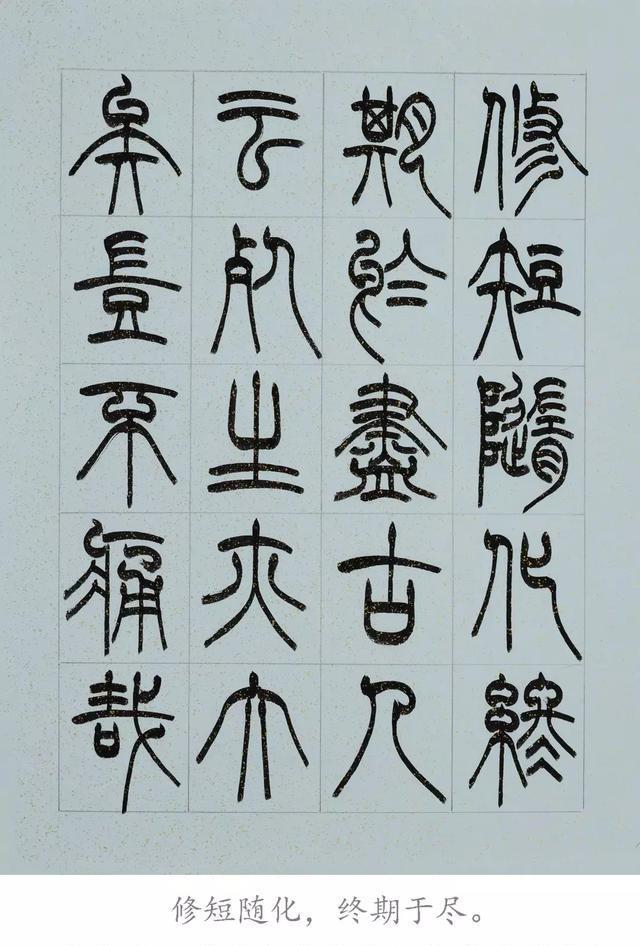 修短隨化終
期於盡古人
云死生亦大
矣豈不痛哉
修短随化，终期于尽。